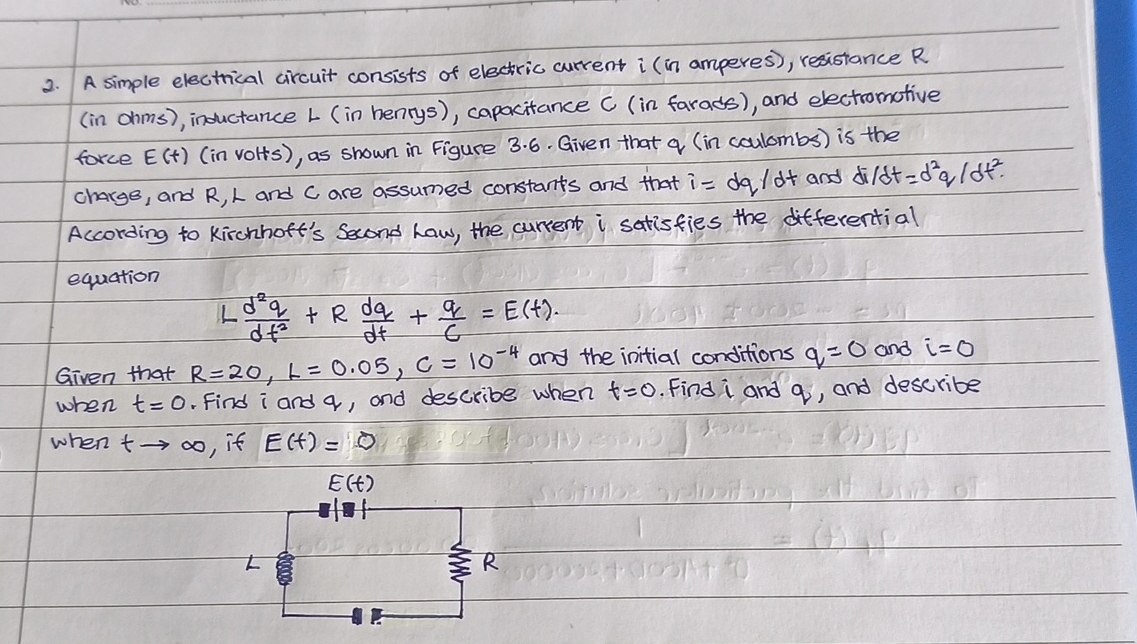 2. A simple electrical circuit consists of electric current i (in amperes), resistance R
(in ohms), inductance L (in henrys), capacitance C (in farads), and electromotive
force E(t) (in volts), as shown in Figure 3.6. Given that q (in coulombs) is the
charge, and R, L and C are assumed constants and that i = dq/dt and di/dt = d²q/dt².
According to Kirchhoff's Second Law, the current i satisfies the differential
equation
L d²q/dt² + R dq/dt + q/C = E(t).
Given that R=20, L=0.05, C = 10⁻⁴ and the initial conditions q=0 and i=0
when t=0. Find i and q, and describe when t=0. Find i and q, and describe
when t → ∞, if E(t) =
E(t)
L
R